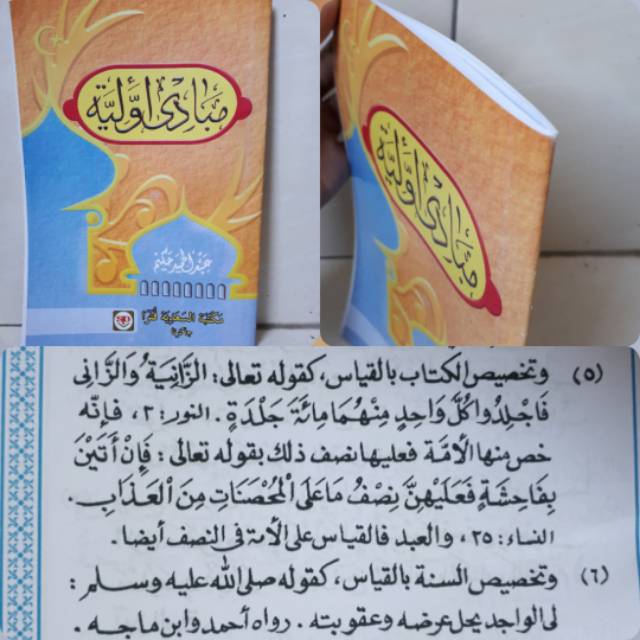 مبادئ أوّليّة
عبد الحميد حكيم
مكتبة السعدية فترا
جاكرتا
مبادئ أوّليّة
(٥) وتخصيص الكتاب بالقياس، كقوله تعالى: الزَّانِيَةُ وَالزَّانِى
فَاجْلِدُوا كُلَّ وَاحِدٍ مِنْهُمَا مِائَةَ جَلْدَةٍ. النور: ٢، فإنّه
خص منها الأمَة فعليها نصف ذلك بقوله تعالى: فَإِنْ أَتَيْنَ
بِفَاحِشَةٍ فَعَلَيْهِنَّ نِصْفُ مَا عَلَى الْمُحْصَنَاتِ مِنَ الْعَذَابِ.
النساء: ٢٥، والعبد فالقياس على الأمة في النصف أيضا.
(٦) وتخصيص السنة بالقياس، كقوله صلى الله عليه وسلم:
لى الواجد يحل عرضه وعقوبته. رواه أحمد وابن ماجه.